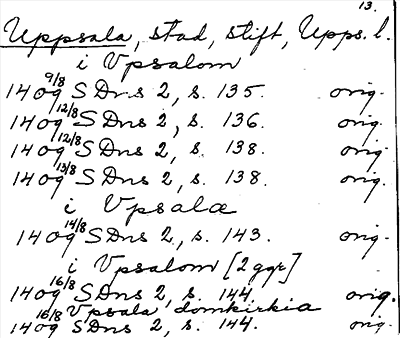 13.
Uppsala, stad, stift, Upps. l.
i Vpsalom
1409 9/8 SDns 2, s. 135. orig.
1409 12/8 SDns 2, s. 136. orig.
1409 12/8 SDns 2, s. 138. orig.
1409 13/8 SDns 2, s. 138. orig.
i Vpsalæ
1409 14/8 SDns 2, s. 143. orig.
i Vpsalom [2 ggr]
1409 16/8 SDns 2, s. 144. orig.
Vpsala domkirkia
1409 16/8 SDns 2, s. 144. orig.